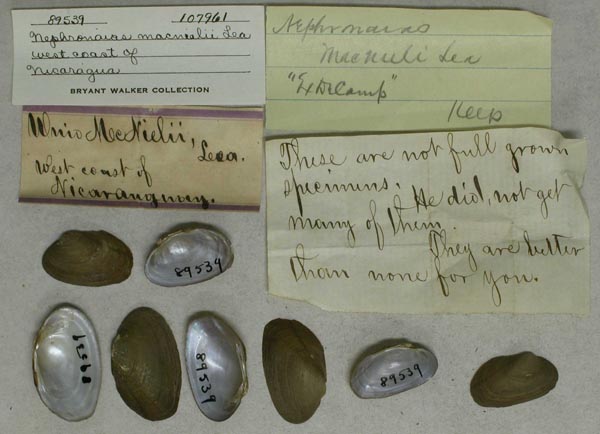 89539 107961
Nephronaias macneilii Lea
west coast of
Nicaragua
BRYANT WALKER COLLECTION
Nephronaias
MacNieli Lea
"Ex DeCamp"
Keep
Unio McNielii,
Lea.
West coast of
Nicaranguay.
These are not full grown
specimens. He did, not get
many of them.
They are better
than none for you.
89539
89539
89539
89539